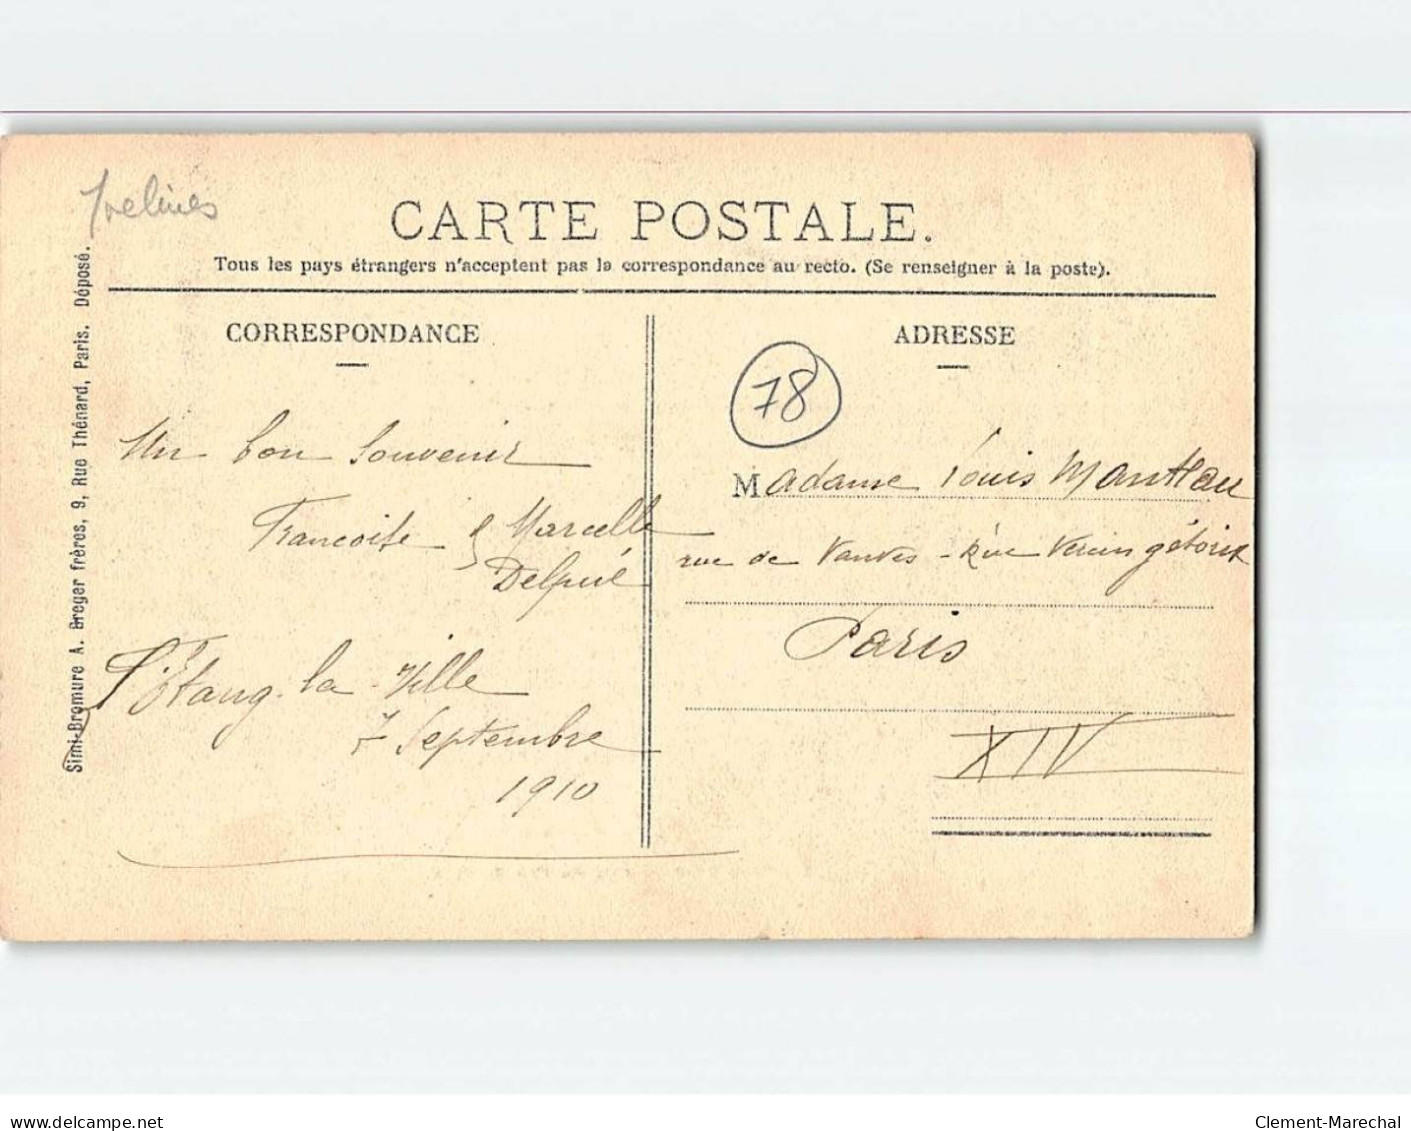 Yvelines
CARTE POSTALE.
Tous les pays étrangers n'acceptent pas la correspondance au recto. (Se renseigner à la poste).
Simi-Bromure A. Breger frères, 9, Rue Thénard, Paris. Déposé.
CORRESPONDANCE
Un bon Souvenir
Françoise & Marcelle
L'Étang-la-Ville
7 Septembre
1910
ADRESSE
78
Madame Louis
rue de Vanves - Vercingétorix
Paris
XIV
www.delcampe.net
Clement-Marechal